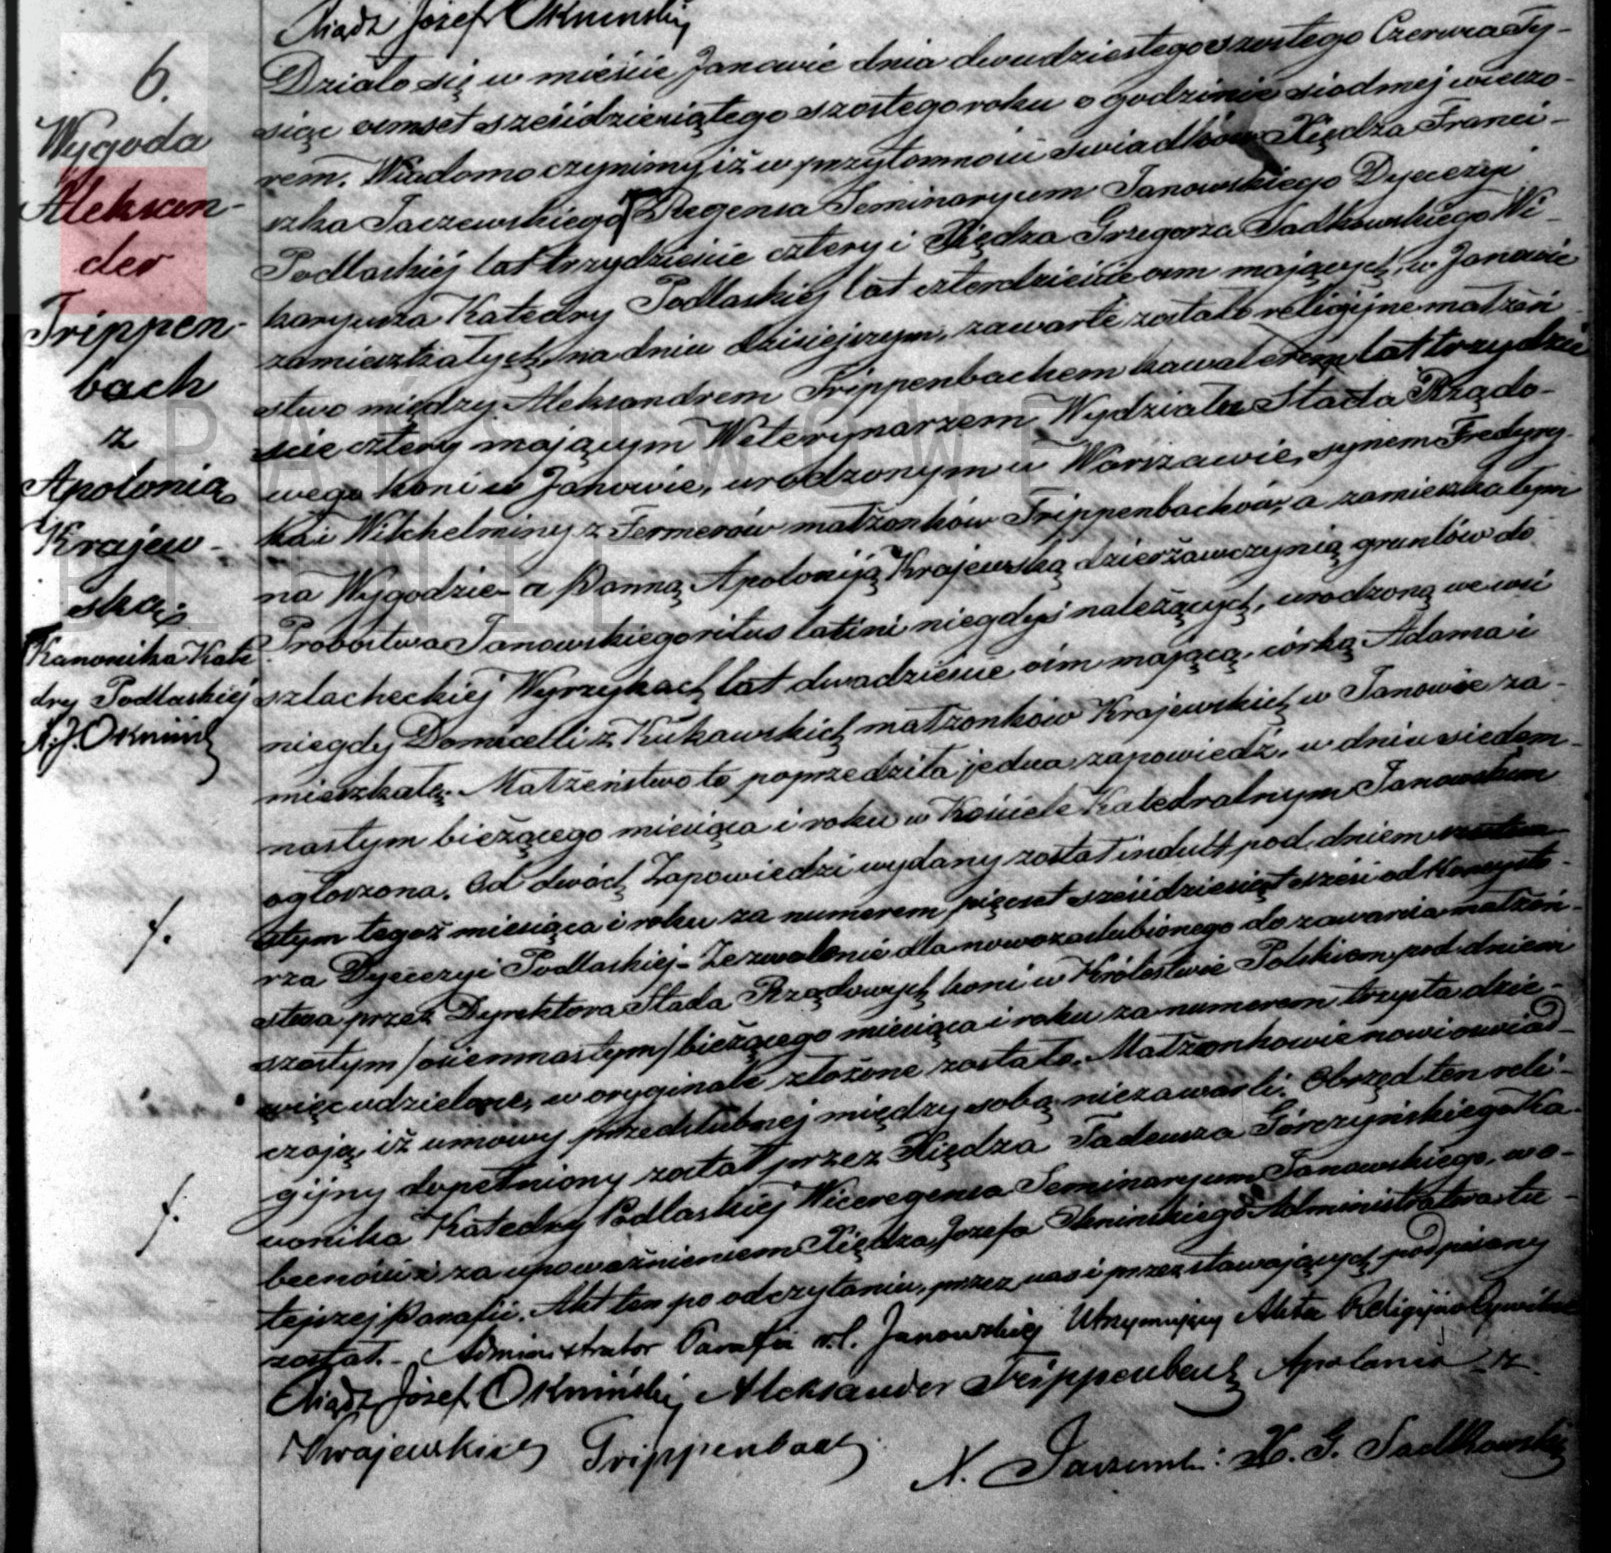 Xiądz Józef Okniński
6.
Wygoda
Aleksan-
der
Trippen-
bach
z
Apolonią
Krajew-
ską
Kanonika Kate
dry Podlaskiej
X. J. Okniński
Działo się w mieście Janowie dnia dwudziestego szóstego Czerwca Ty-
siąc ośmset sześćdziesiątego szóstego roku o godzinie siódmej wieczo-
rem. Wiadomo czynimy iż w przytomności świadków Xiędza Franci-
szka Jaczewskiego Regensa Seminaryum Janowskiego Dyecezyi
Podlaskiej lat trzydzieście cztery i Xiędza Grzegorza Sadkowskiego Wi-
karyusza Katedry Podlaskiej lat czterdzieście ośm mających, w Janowie
zamieszkałych, na dniu dzisiejszym, zawarte zostało religijne małżeń-
stwo między Aleksandrem Trippenbachem kawalerem lat trzydzie
ście cztery mającym Weterynarzem Wydziału Stada Rządo-
wego koni w Janowie, urodzonym w Warszawie, synem Fredyry-
ka i Wilhelminy z Fermerów małżonków Trippenbachów, a zamieszkałym
na Wygodzie - a Panną Apoloniją Krajewską dzierżawczynią gruntów do
Probostwa Janowskiego ritus latini niegdyś należących, urodzoną we wsi
szlacheckiej Wyrzykach lat dwadzieście ośm mającą, córką Adama i
niegdy Domicelli z Kukawskich małżonków Krajewskich w Janowie za-
mieszkałą. Małżeństwo to poprzedziła jedna zapowiedź, w dniu siedem-
nastym bieżącego miesiąca i roku w Kościele Katedralnym Janowskim
ogłoszona. Od dwóch Zapowiedzi wydany został indult pod dniem
stym tegoż miesiąca i roku za numerem pięćset sześćdziesiąt sześć od Konsysto-
rza Dyecezyi Podlaskiej - Zezwolenie dla nowozaślubionego do zawarcia małżeń-
stwa przez Dyrektora Stada Rządowych koni w Królestwie Polskiem pod dniem
szóstym /ośiemnastym/ bieżącego miesiąca i roku za numerem trzysta dzie-
więć udzielone, w oryginale złożone zostało. Małżonkowie nowi oświad-
czają, iż umowy przedślubnej między sobą niezawarli. Obrzęd ten reli-
gijny dopełniony został przez Xiędza Tadeusza Górczyńskiego Ka-
nonika Katedry Podlaskiej Wiceregensa Seminaryum Janowskiego, w o-
becności i za upoważnieniem Xiędza Józefa Oknińskiego Administratora tu-
tejszej Parafii. Akt ten po odczytaniu, przez nas i przez stawających podpisany
został. - Administrator Parafii r.l. Janowskiej Utrzymujący Akta Religijno Cywilne
Xiądz Józef Okniński Aleksander Trippenbach Apolonia z
Krajewskich Trippenbach
X. Jaczewski X. G. Sadkowski
PAŃSTWOWE